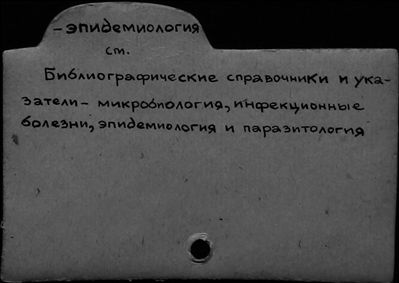 - эпидемиология
см.
Библиографические справочники и ука-
затели - микробиология, инфекционные
болезни, эпидемиология и паразитология